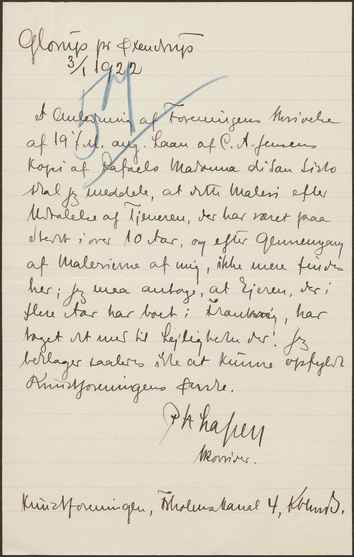 Glorup pr Ørendrup
3/1 1922
57
I Anledning af Foreningens Skrivelse
af 19 f.M. ang. Laan af C. A. Jensens
Kopi af Rafaels Madonna di San Sisto
skal jeg meddele, at dette Maleri efter
Udtalelse af Tjeneren, der har været paa
Stedet i over 10 Aar, og efter Gennemgang
af Malerierne af mig, ikke mere findes
her; jeg maa antage, at Ejeren, der i
flere Aar har boet i Frankrig, har
taget det med til Lejligheden der. Jeg
beklager saaledes ikke at kunne opfylde
Kunstforeningens Ønske.
Skovrider.
Kunstforeningen, Holmens Kanal 4, Kbhvn.